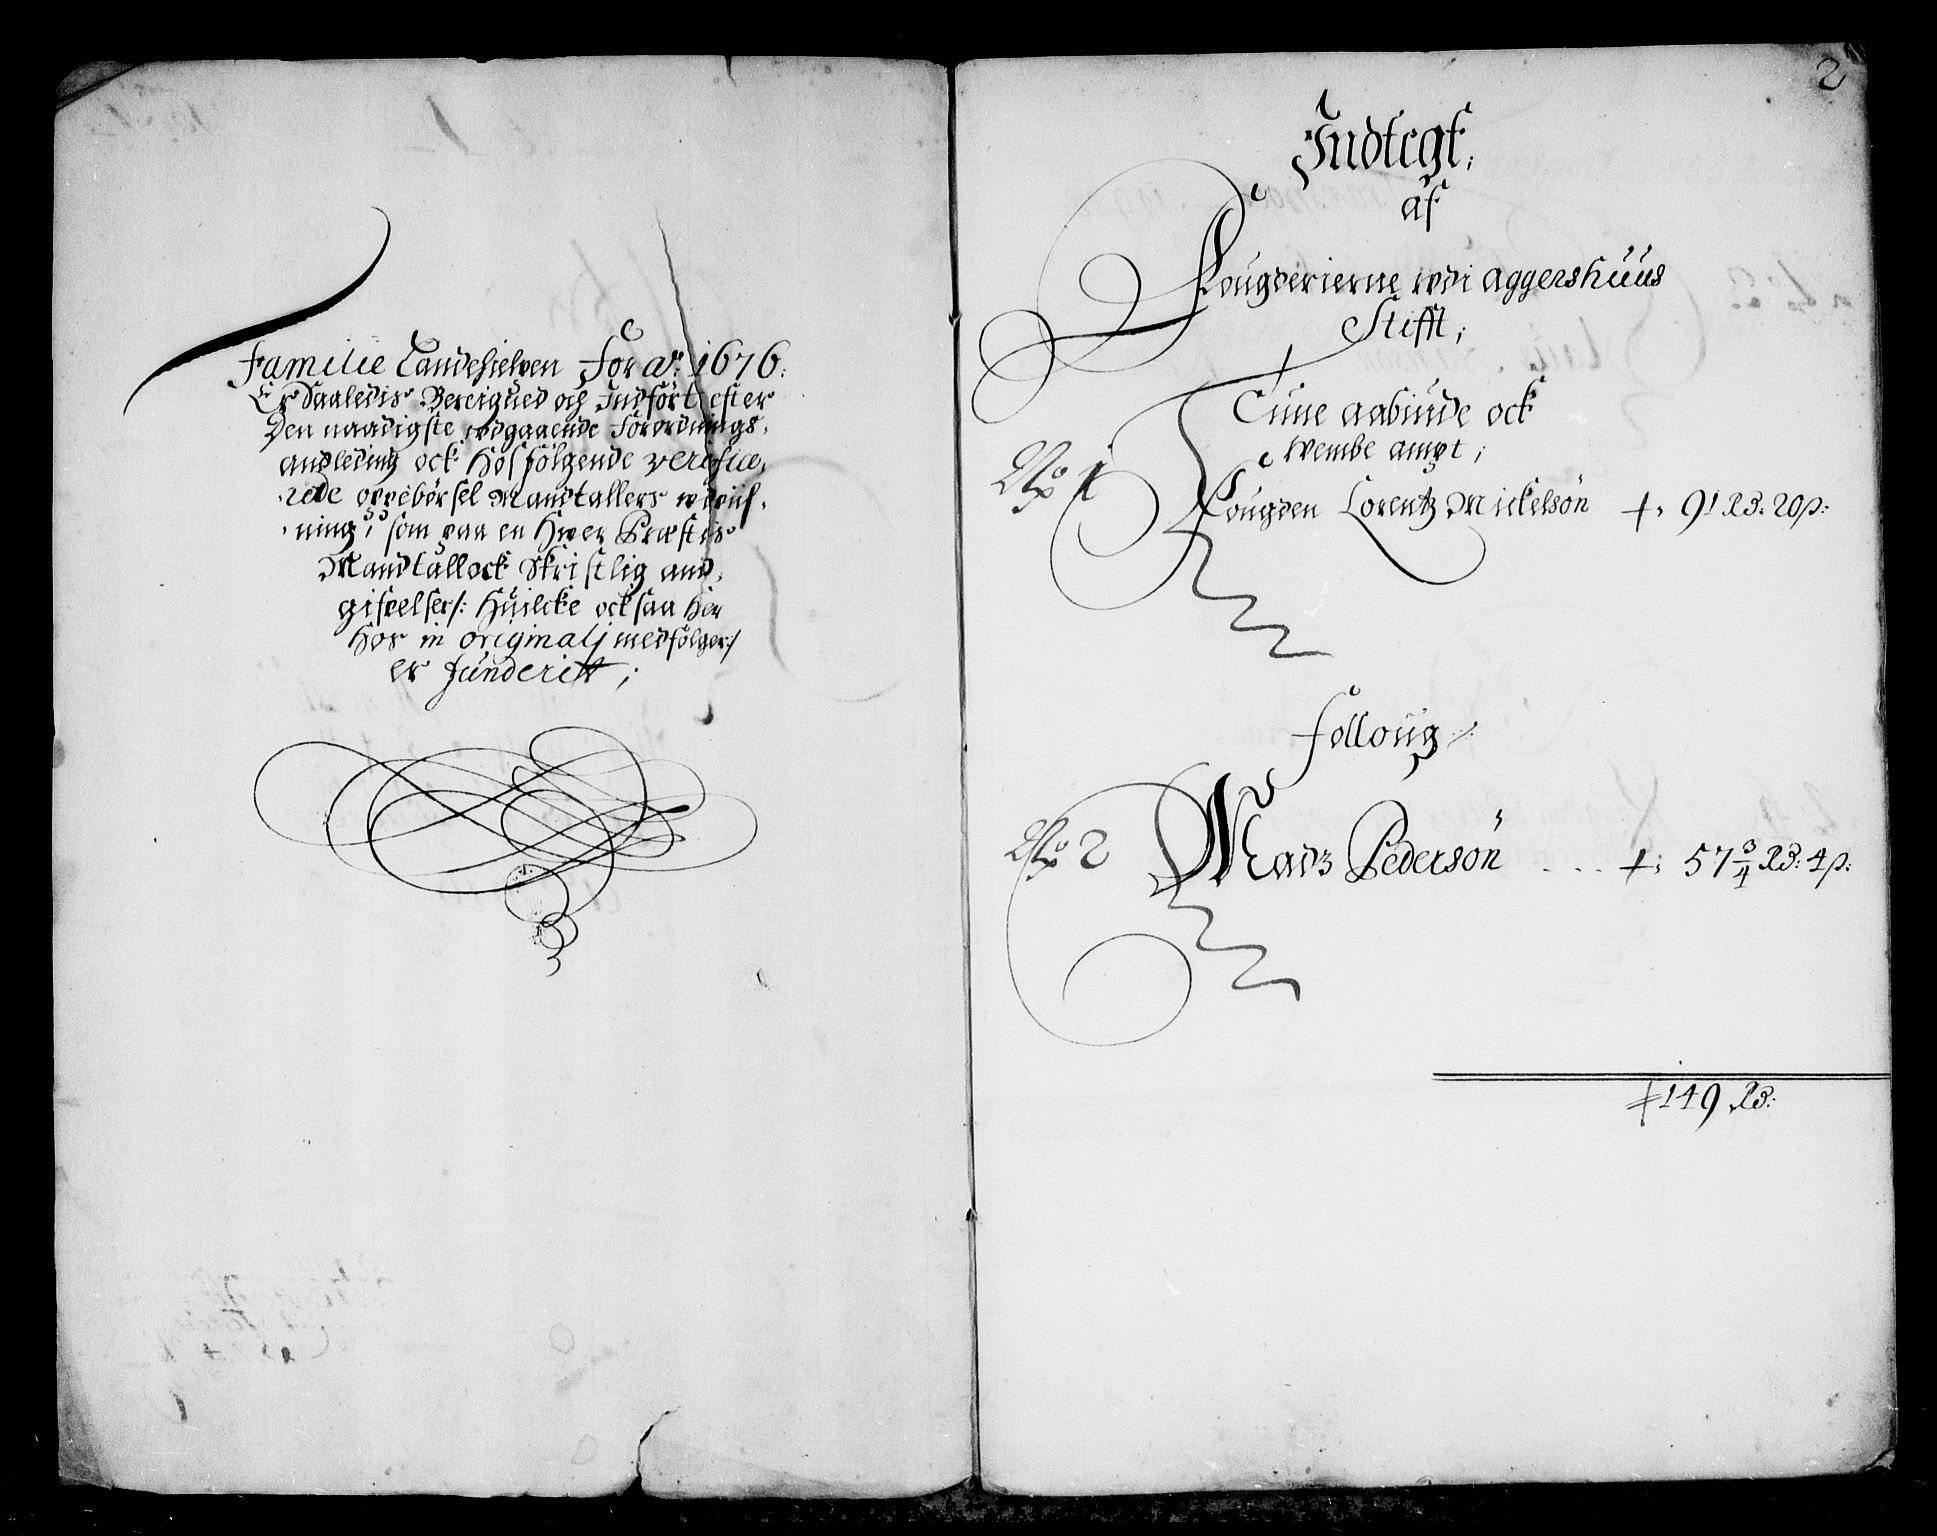 Familie Landehielpen For Ao: 1676:
Er Saaledis Bereigned och Indfört efter
Den naadigste udgaaende Forordnings
andleding ock Hosfölgende verefice,
rede oppebörsel Mandtallers udviis,
ning; som paa en Hver Præstes
Mandtall ock Skriftlig and,
gifvelser/: Huilcke ocksaa Her
Hos in originalj medfölger:/
er funderitt;
2
Indtegt;
af
Fougderierne udi Aggershuus
Stifft;
Tune aabÿude ock
Wembe ampt;
No 1
Fougden Lorentz Mickelsön ⨍: 91 Rd: 20 ß:
Folloug:/:
No 2 Madz Pedersön . . . ⨍: 57 3/4 Rd: 4 ß:
⨍ 149 Rd: